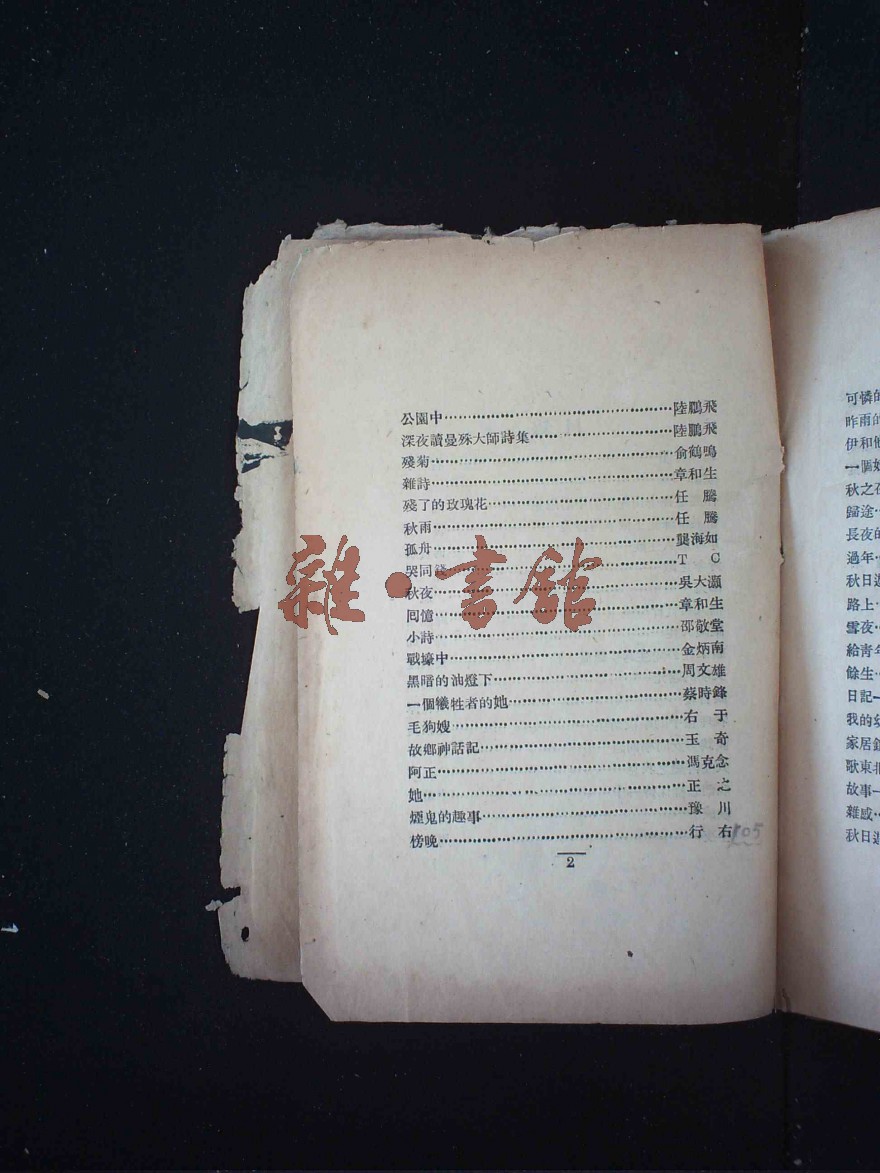 公園中……陸鵬飛
深夜讀曼殊大師詩集……陸鵬飛
殘菊……俞鶴鳴
雜詩……章和生
殘了的玫瑰花……任　騰
秋雨……任　騰
孤舟……龔海如
哭同錢……T　C
秋夜……吳大灝
囘憶……章和生
小詩……邵敬堂
戰壕中……金炳南
黑暗的油燈下……周文雄
一個犧牲者的她……蔡時鋒
毛狗嫂……右　于
故鄉神話記……玉　奇
阿正……馮克念
她……正　之
煙鬼的趣事……豫　川
榜晚……行　右
105
2
雜·書館
可憐的
昨雨的
伊和他
一個
秋之夜
歸途
長夜的
過年
秋日
路上
雪夜
給青年
餘生
日記一
我的
家居
歌東北
故事一
雜感
秋日